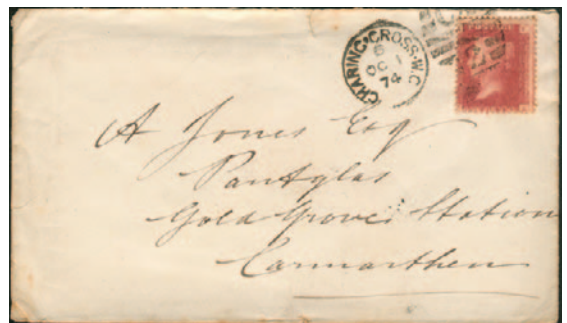 CHARING·CROSS·W.C
6
OC 1
74
A Jones Esq
Pantglas
Gold Grove Station
Carmarthen